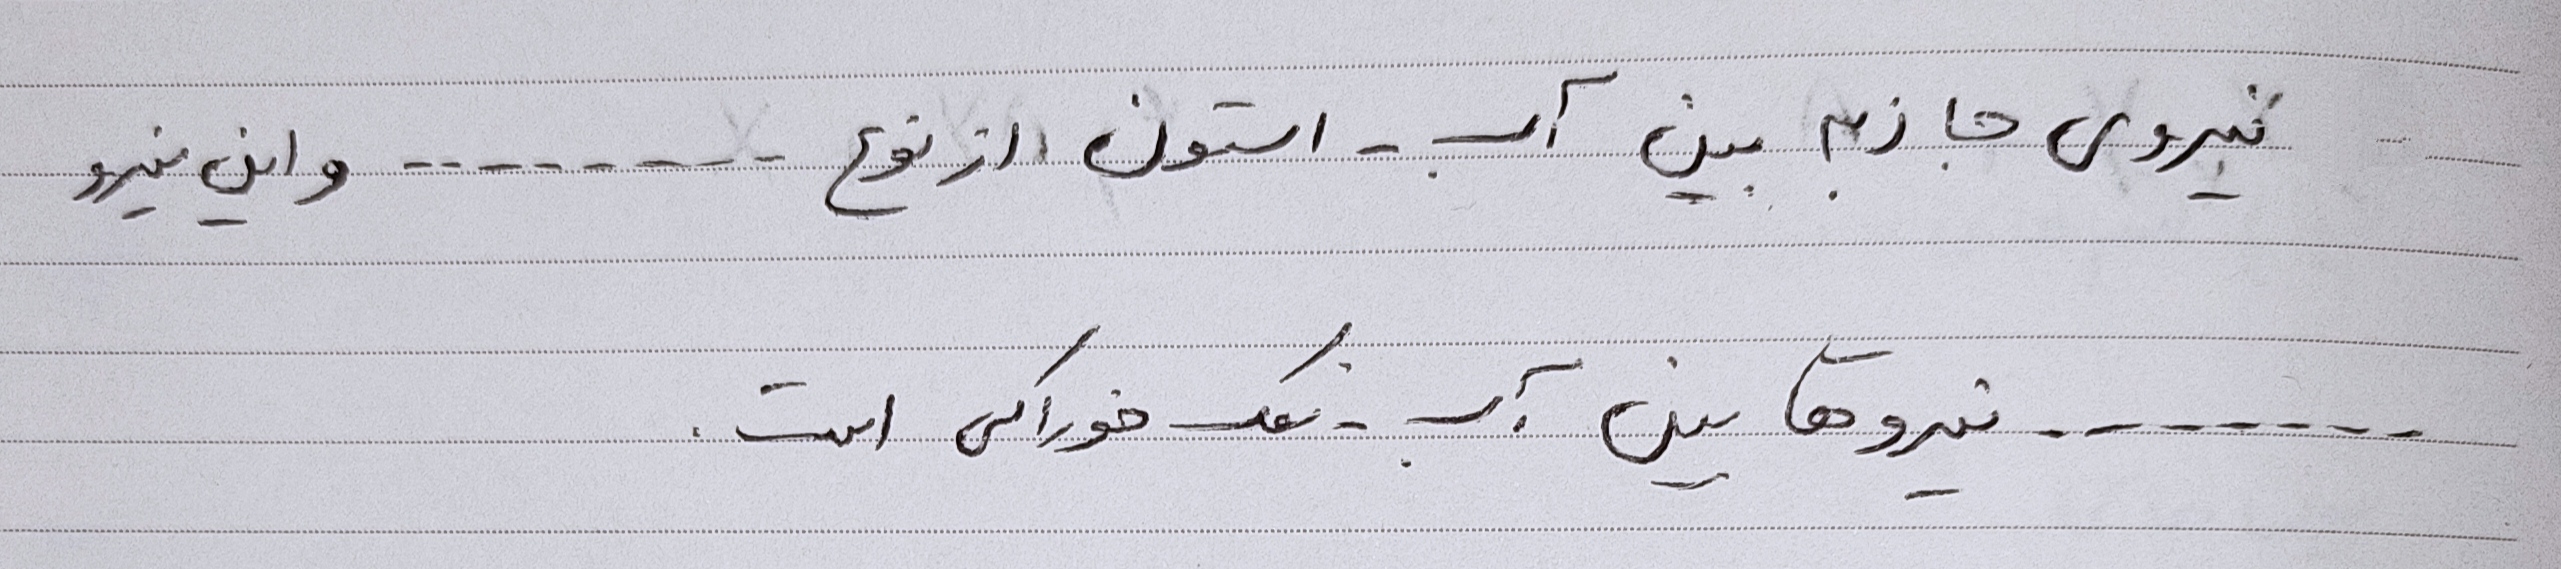 - نیروی جاذبه بین آب - استون از نوع -------- و این نیرو
-------- نیروها بین آب - نمک خوراکی است.